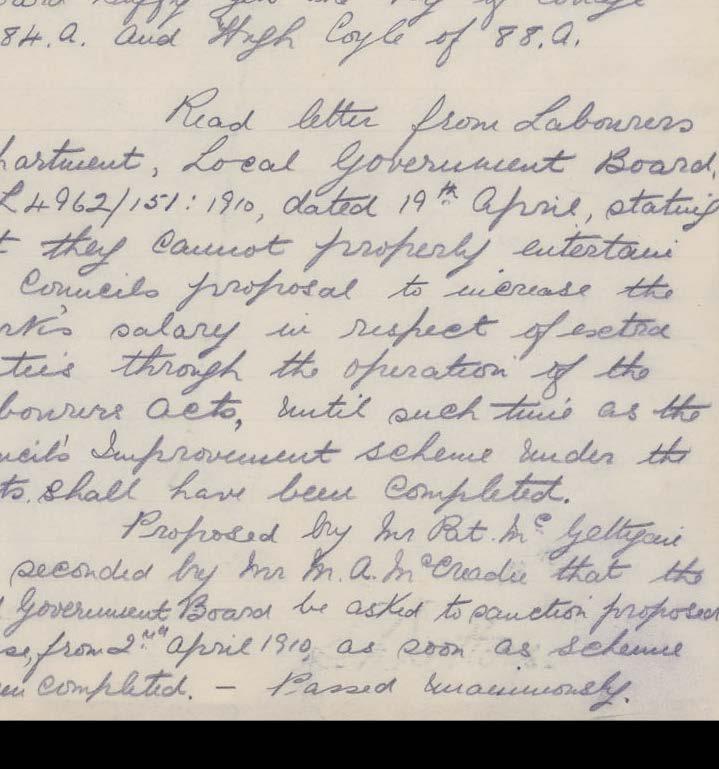 the Key of Cottage
84.A. and Hugh Coyle of 88.A.
Read letter from Labourers
partment, Local Government Board,
L4962/151:1910, dated 19th April, stating
t they cannot properly entertain
Councils proposal to increase the
rk's salary in respect of extra
ties through the operation of the
bourers Acts, until such time as the
ncil's Improvement scheme under the
ts. shall have been completed.
Proposed by Mr Pat. Mc Gettigan
seconded by Mr M. A. McCreadie that the
l Government Board be asked to sanction proposed
se, from 2nd April 1910, as soon as scheme
en completed. — Passed unanimously.